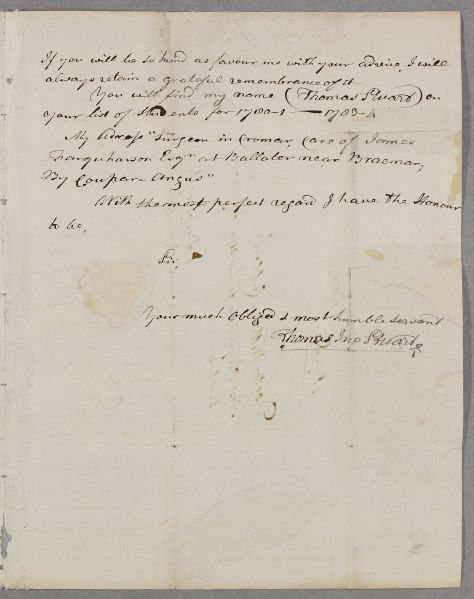 If you will be so kind as favour me with your advice, I will
always retain a grateful remembrance of it
You will find my name (Thomas Stuart) on
your list of Students for 1780-1 — 1783-4
My Adress "Surgeon in Cromar, Care of James
Farquharson Esqr at Ballater near Braemar,
By Coupar-Angus"
With the most perfect regard I have the Honour
to be,
Sir,
Your much obliged & most humble servant
Thomas Jno Stuart